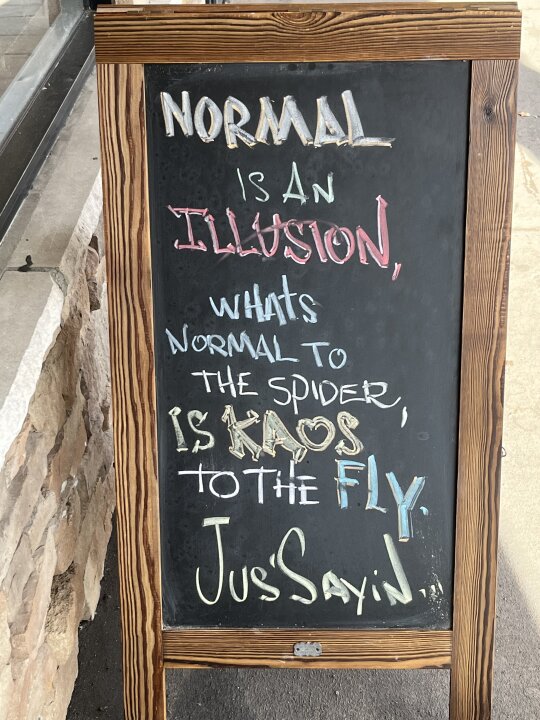 NORMAL
IS AN
ILLUSION,
WHATS
NORMAL TO
THE SPIDER,
IS KAOS
TO THE FLY.
JUS' SAYIN.